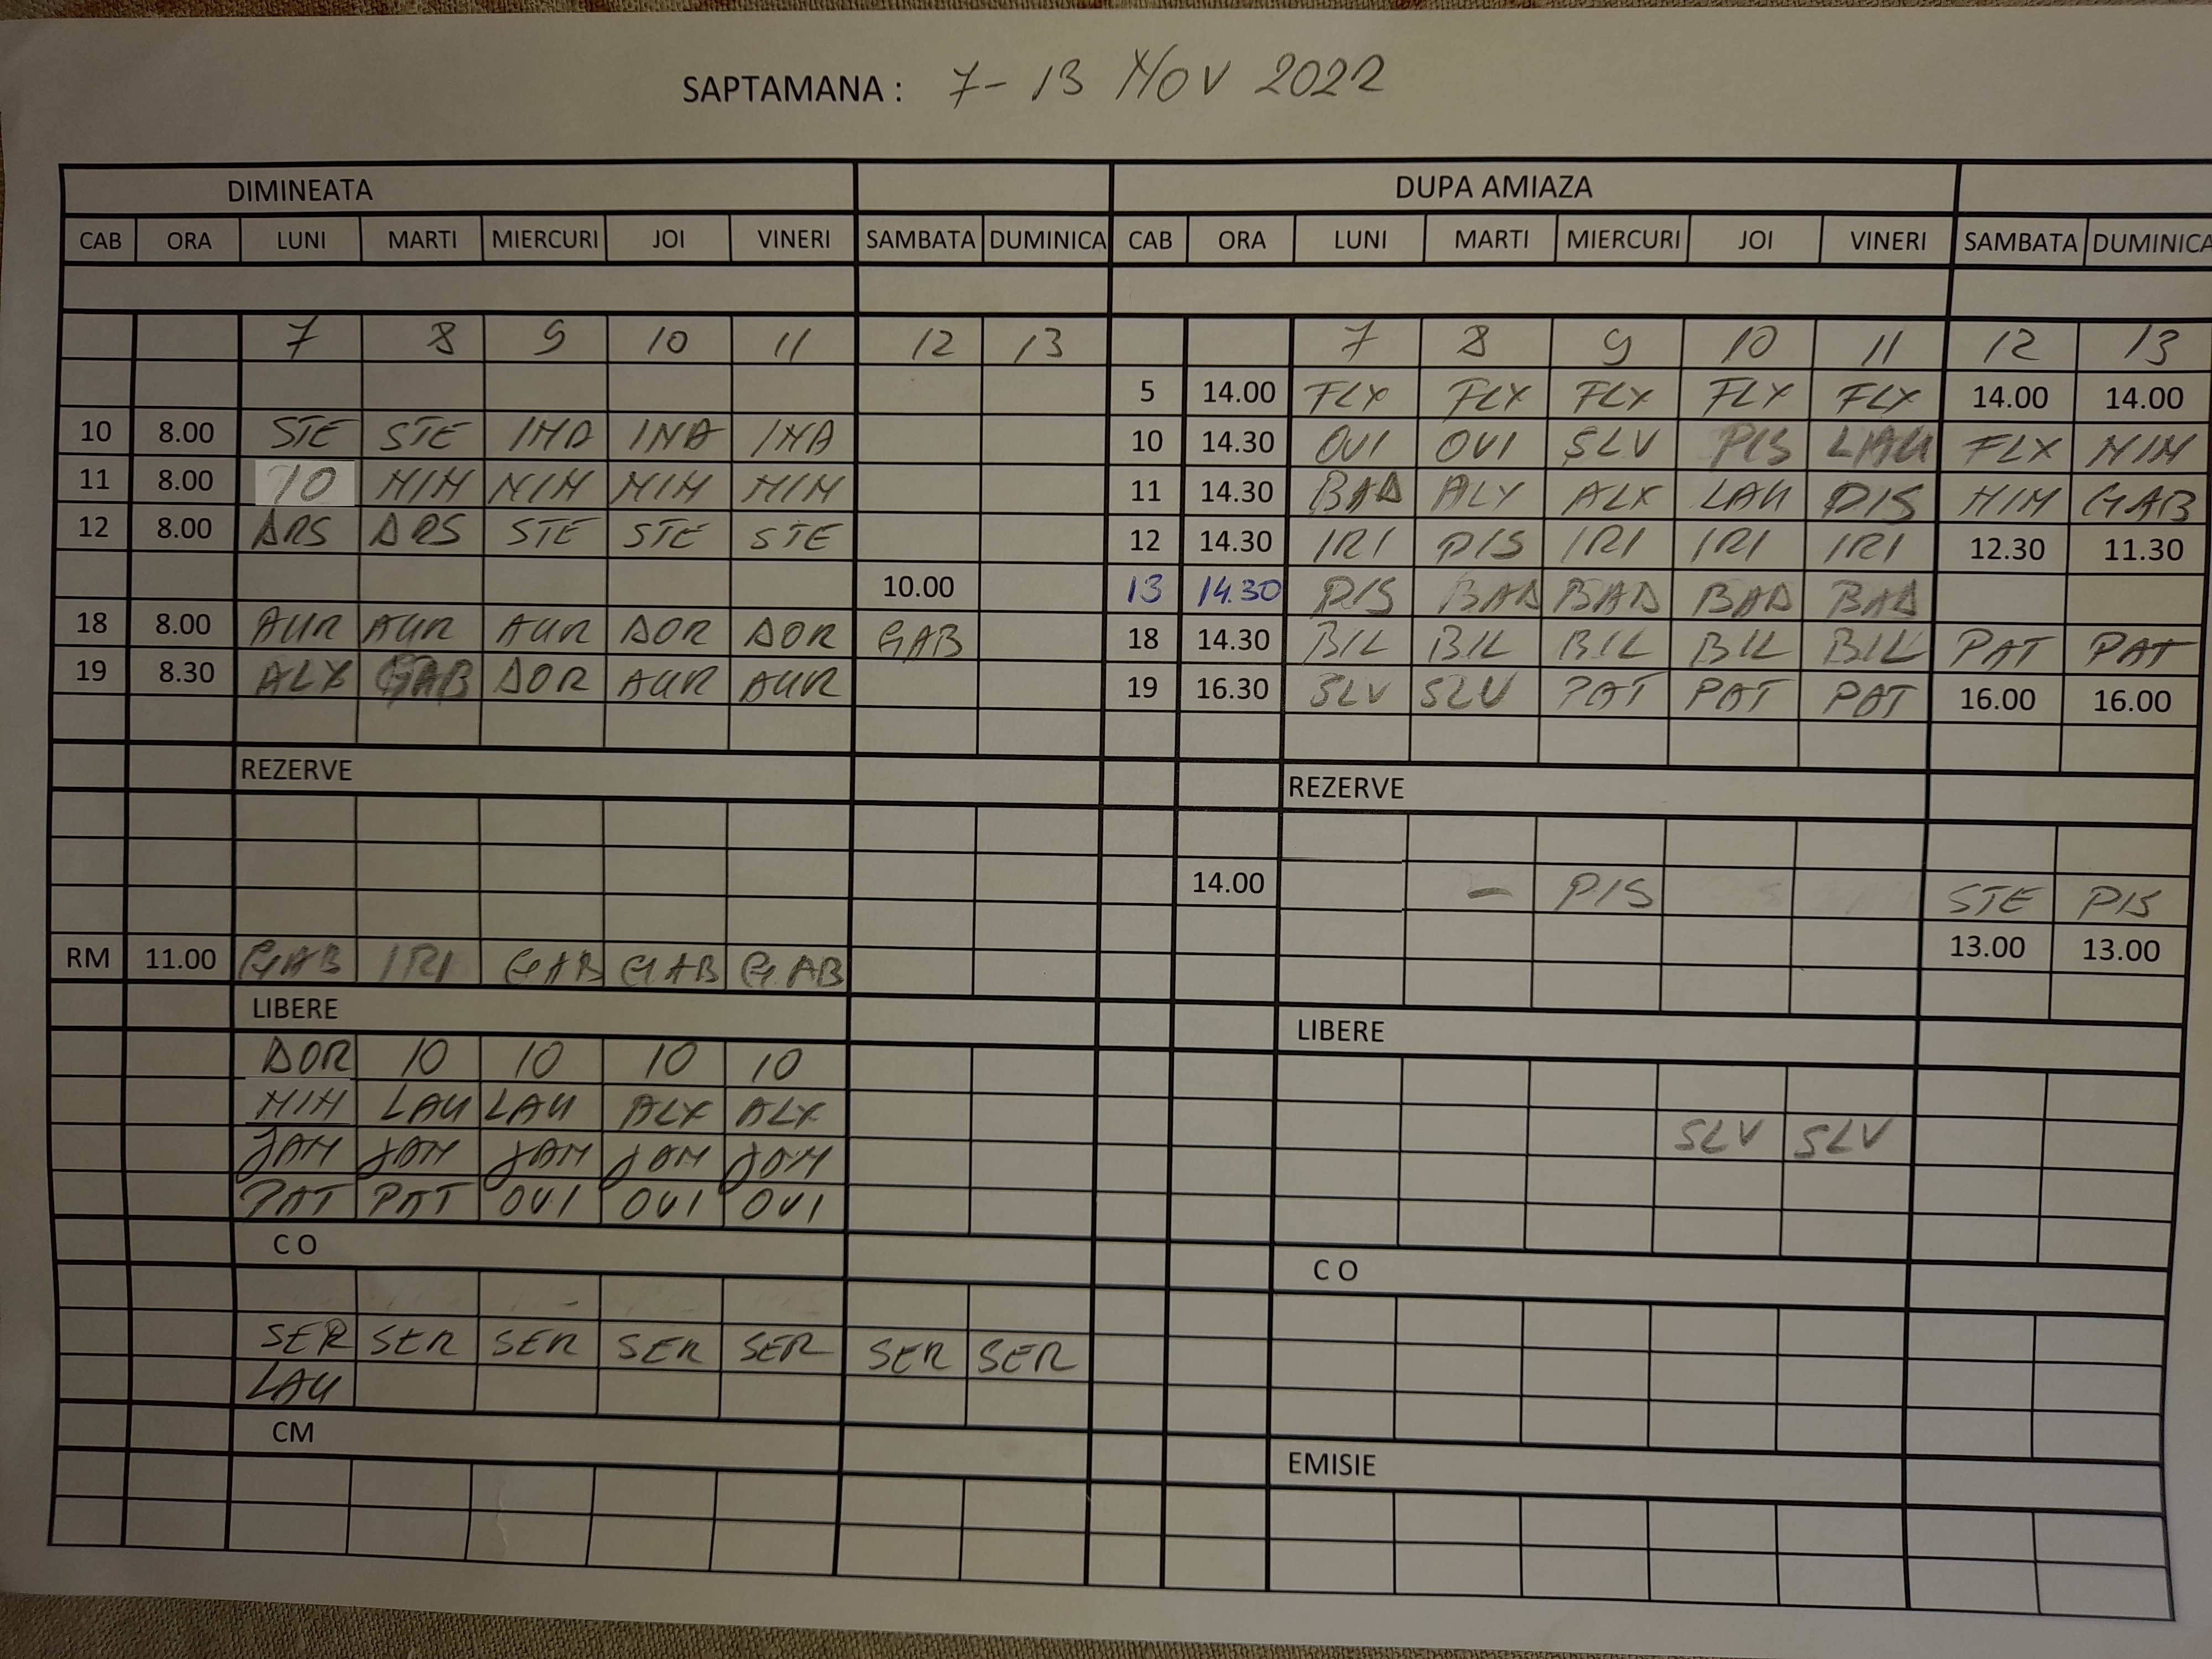 SAPTAMANA : 7-13 NOV 2022
DIMINEATA DUPA AMIAZA
CAB ORA LUNI MARTI MIERCURI JOI VINERI SAMBATA DUMINICA CAB ORA LUNI MARTI MIERCURI JOI VINERI SAMBATA DUMINICA
7 8 9 10 11 12 13 7 8 9 10 11 12 13
5 14.00 FLX FLX FLX FLX FLX 14.00 14.00
10 8.00 STE STE INA INA INA 10 14.30 OVI OVI SLV PIS LAU FLX MIM
11 8.00 10 MIM MIM MIM MIM 11 14.30 BAD ALX ALX LAU PIS MIM GAB
12 8.00 ARS ARS STE STE STE 12 14.30 IRI PIS IRI IRI IRI 12.30 11.30
10.00 13 14.30 PIS BAD BAD BAD BAD
18 8.00 AUR AUR AUR DOR DOR GAB 18 14.30 BIL BIL BIL BIL BIL PAT PAT
19 8.30 ALX GAB DOR AUR AUR 19 16.30 SLV SLV PAT PAT PAT 16.00 16.00
REZERVE REZERVE
14.00 - PIS STE PIS
RM 11.00 GAB IRI GAB GAB GAB 13.00 13.00
LIBERE LIBERE
DOR 10 10 10 10
MIM LAU LAU ALX ALX SLV SLV
JAM JAM JAM JAM JAM
PAT PAT OVI OVI OVI
C O C O
SER SER SER SER SER SER SER
LAU
CM EMISIE